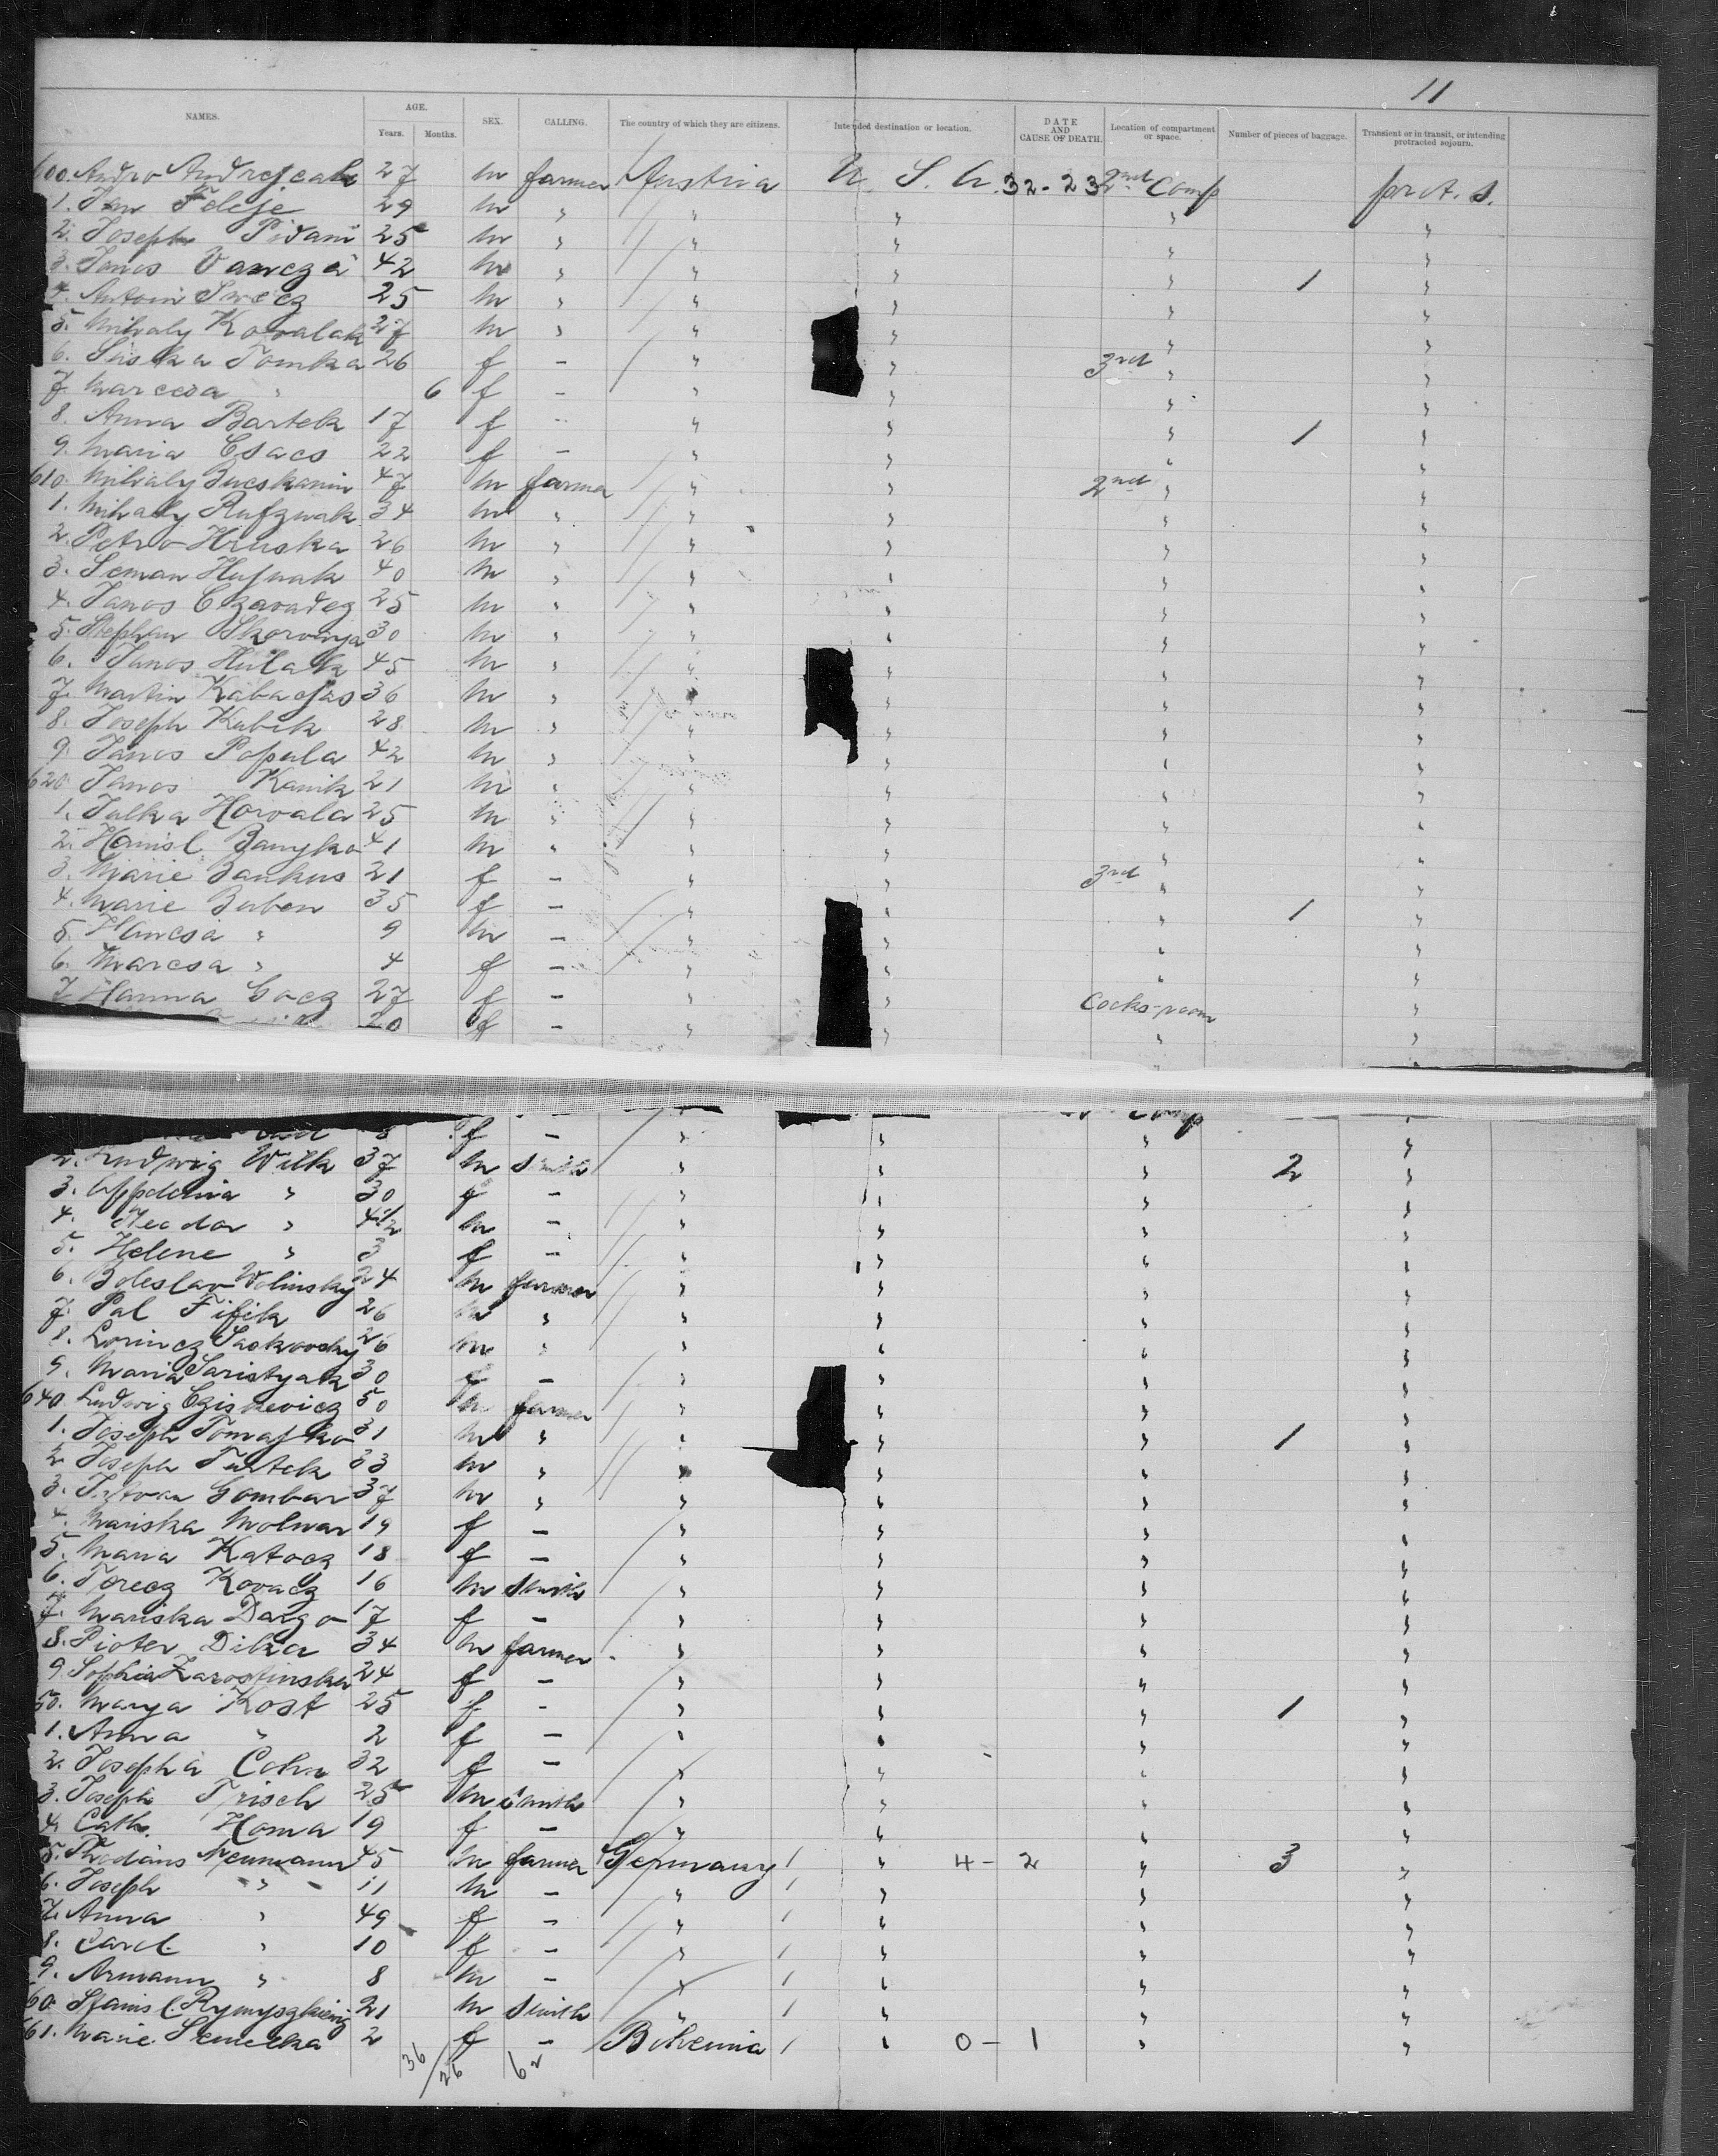 11
NAMES. AGE. Years. Months. SEX. CALLING. The country of which they are citizens. Intended destination or location. DATE AND CAUSE OF DEATH. Location of compartment or space. Number of pieces of baggage. Transient or in transit, or intending protracted sojourn.
600. Andro Andrejcak 27 m farmer Austria U. S. A. 32-23 2nd Comp prot. s.
1. Jan Feleje 29 m " " " " "
2. Joseph Pidani 25 m " " " " "
3. Janos Vancza 42 m " " " " 1 "
4. Antoni 25 m " " " " "
5. Mihaly Kowalak 27 m " " " " "
6. Suska Tomka 26 f - " " 3rd " "
7. Marcsa " 6 f - " " " "
8. Anna Bartek 17 f - " " " 1 "
9. Maria Csacs 22 f - " " " "
610. Mihaly 47 m farmer " " 2nd " "
1. Mihaly 34 m " " " " "
2. Petro Hruska 26 m " " " " "
3. Seman Hujnak 40 m " " " " "
4. Janos 25 m " " " " "
5. Stephan Skoronya 30 m " " " " "
6. Janos Hulak 45 m " " " " "
7. Martin 36 m " " " " "
8. Joseph Kubik 28 m " " " " "
9. Janos Popula 42 m " " " " "
620. Janos Kanik 21 m " " " " "
1. Julka Horvala 25 m " " " " "
2. Banyko 41 m " " " " "
3. Marie Bankus 21 f - " " 3rd " "
4. Marie Buben 35 f - " " " 1 "
5. " 9 m - " " " "
6. Marcsa " 4 f - " " " "
7. Hanna Gocz 27 f - " " Cocks-room "
20 f - " " " "
Comp
8 f - " " " "
2. Ludwig Wilk 37 m Smith " " " 2 "
3. " 30 f - " " " "
4. " 4 1/2 m - " " " "
5. Helene " 3 f - " " " "
6. Boleslav Wolinsky 24 m farmer " " " "
7. Pal Fifik 26 m " " " " "
8. Lorincz 26 m " " " " "
9. Maria Saristyak 30 f - " " " "
640. Ludwig Cziskevicz 50 m farmer " " " "
1. Joseph Tomasko 31 m " " " " 1 "
2. Joseph Turtek 33 m " " " " "
3. Istvan Gombar 37 m " " " " "
4. Mariska Molnar 19 f - " " " "
5. Maria Katocz 18 f - " " " "
6. Ferecz Kovacz 16 m Smith " " " "
7. Mariska Dargo 17 f - " " " "
8. Pioter Dika 34 m farmer " " " "
9. Sophia Zarostinska 24 f - " " " "
50. Marya Kost 25 f - " " " 1 "
1. Anna " 2 f - " " " "
2. Josepha Cohn 32 f - " " " "
3. Joseph Frisch 25 m Smith " " " "
4. Cath. Homa 19 f - " " " "
5. Neumann 45 m farmer Germany " 4-2 " 3 "
6. Joseph " 11 m - " " " "
7. Anna " 49 f - " " " "
8. Carol. " 10 f - " " " "
9. Armann " 8 m - " " " "
60. Stanisl. 21 m Smith " " " "
661. Marie Semelka 2 f - Bohemia " 0-1 " "
36/26 62